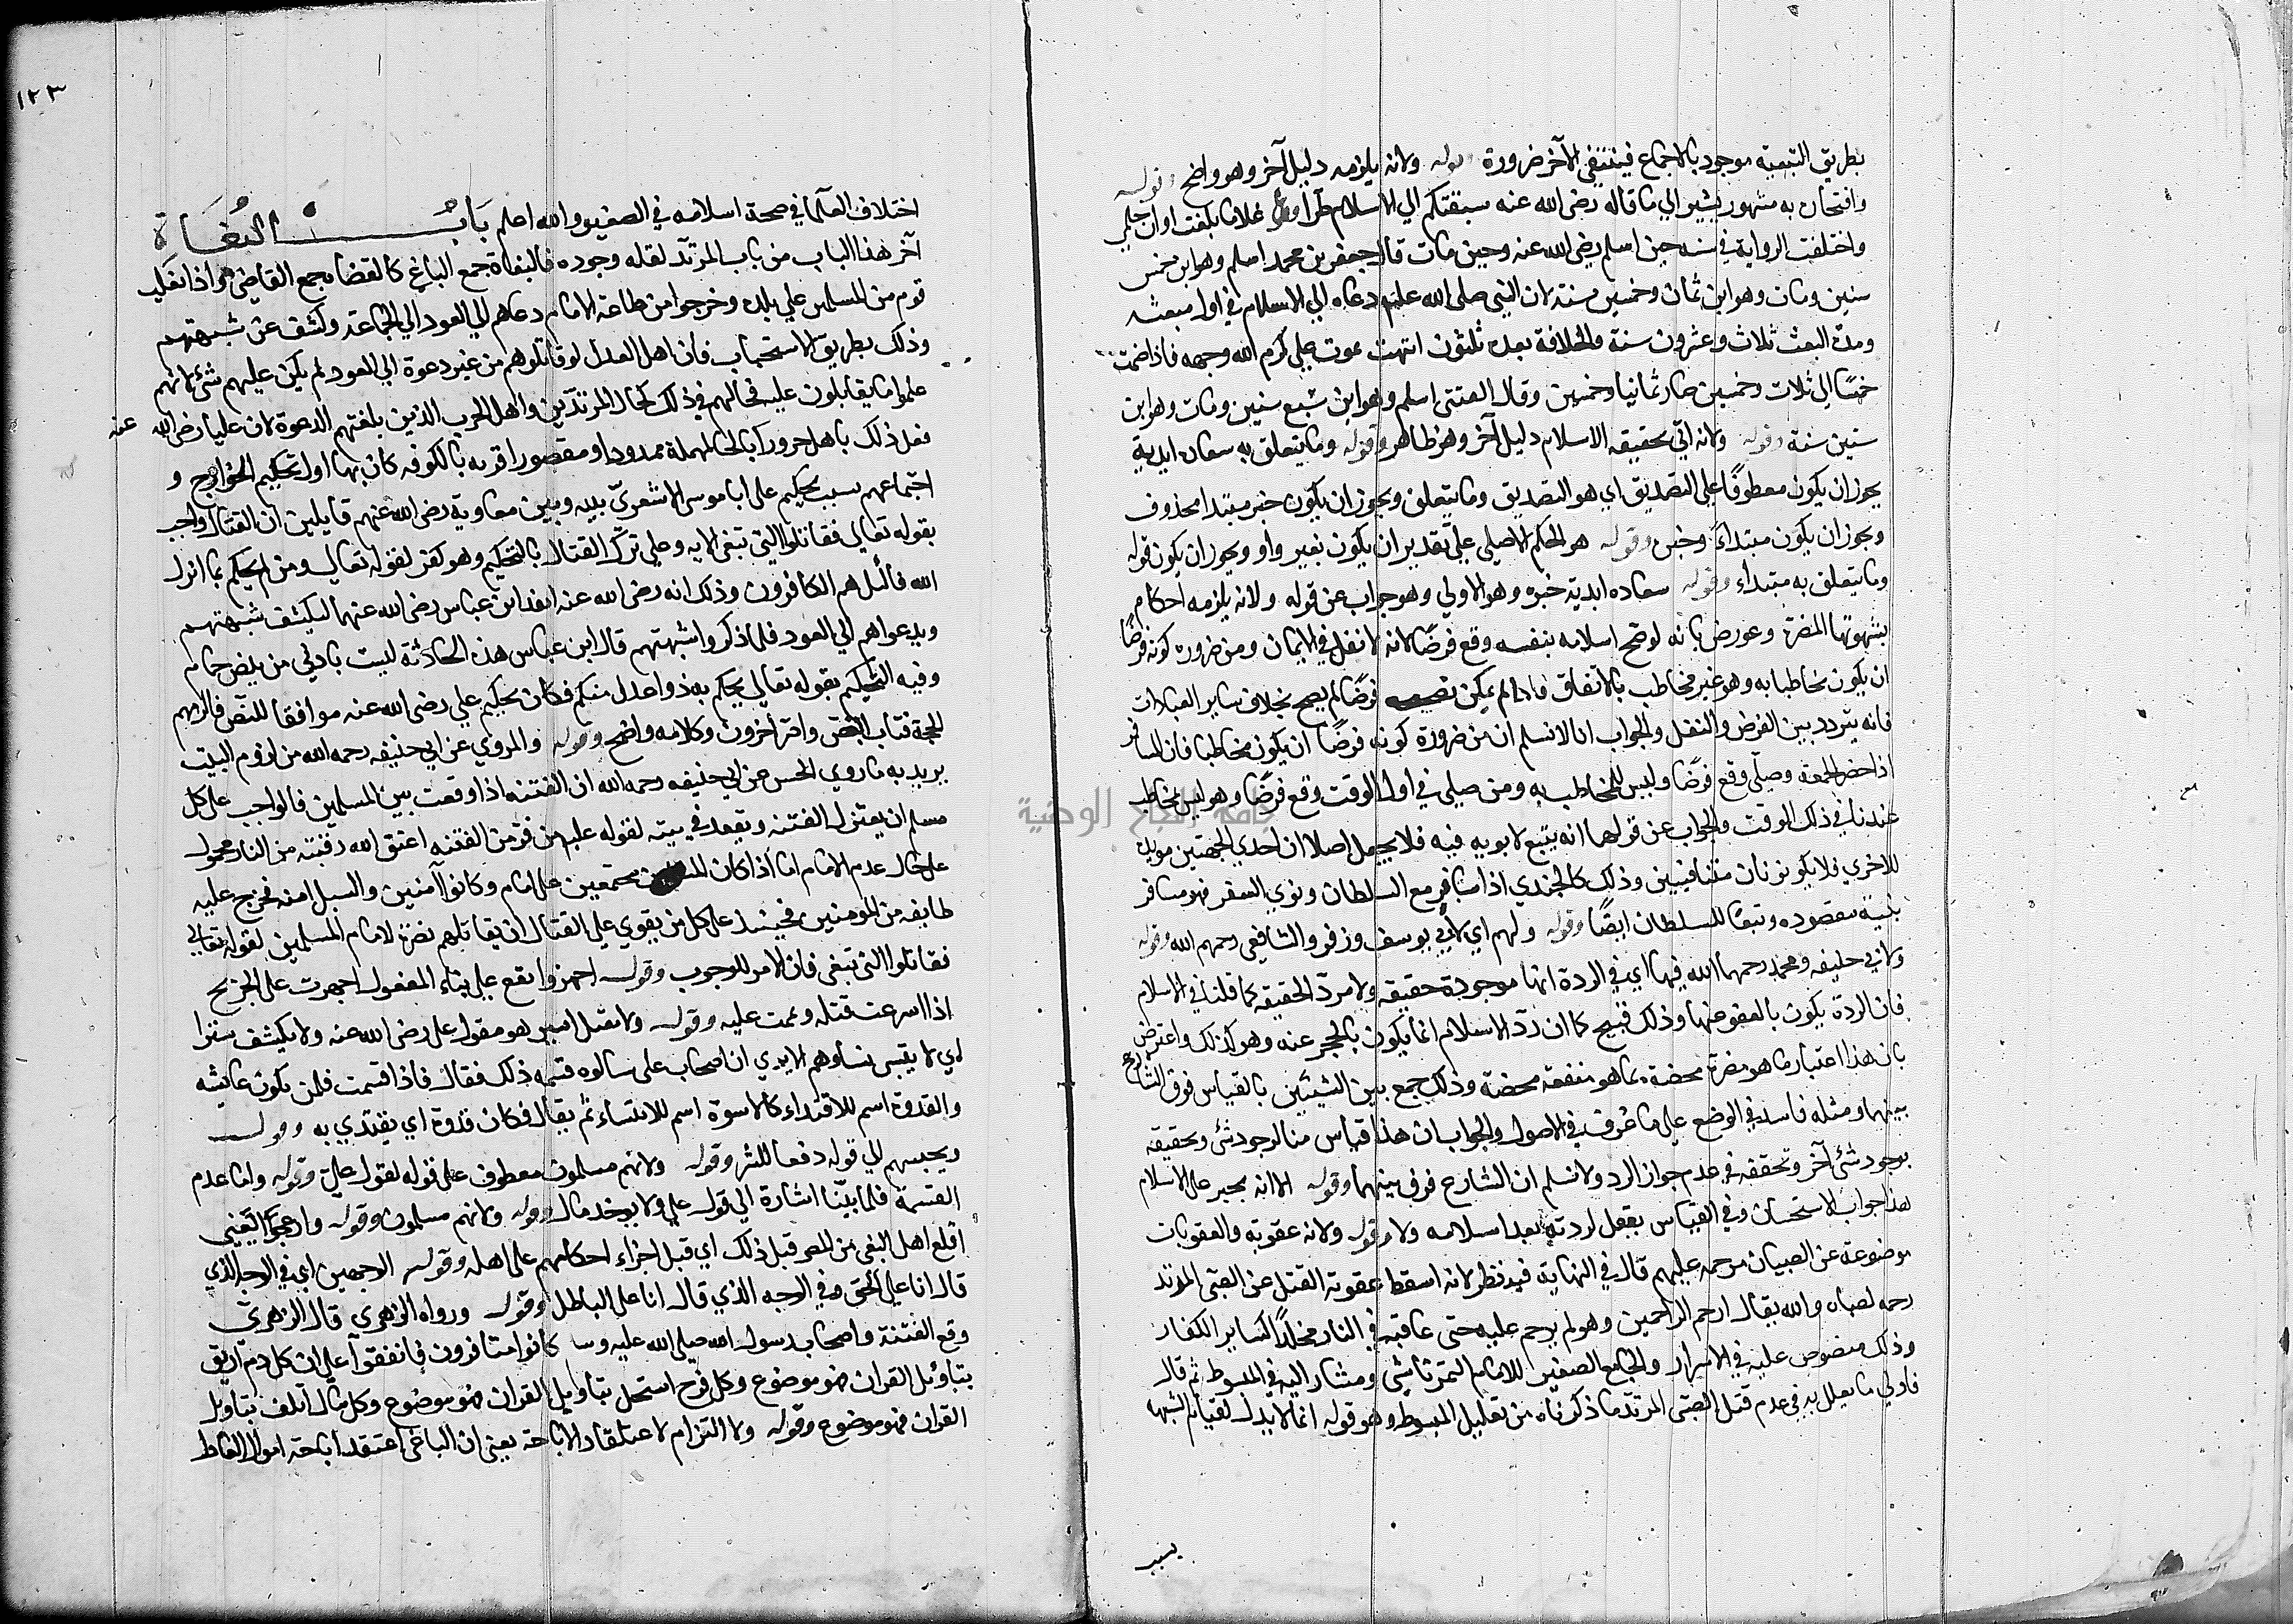 بطريق التبعية موجود بالاجماع فينتفى الآخر ضرورة وقوله ولانه يلزمه دليل آخر وهو واضح وقوله
وافتخاره به مشهور يشير الي ما قاله رضى الله عنه سبقتكم الي الاسلام طرا غلاما بلغت اوان حلمي
واختلفت الرواية في سنه حين اسلم رضى الله عنه وحين مات قال جعفر بن محمد اسلم وهو ابن خمس
سنين ومات وهو ابن ثمان وخمسين سنة لان النبي صلى الله عليه دعاه الي الاسلام في اول مبعثه
ومدة البعث ثلاث وعشرون سنة والخلافة بعده ثلثون انتهت بموت علي كرم الله وجهه فاذا ضمت
خمسا الي ثلاث وخمسين صار ثمانيا وخمسين وقال العتبى اسلم وهو ابن سبع سنين ومات وهو ابن
ستين سنة وقوله ولانه اتى بحقيقة الاسلام دليل آخر وهو ظاهر وقوله وما يتعلق به سعادة ابدية
يجوز ان يكون معطوفا على التصديق اي هو التصديق وما يتعلق ويجوز ان يكون خبر مبتدا محذوف
ويجوز ان يكون مبتداء وخبر وقوله هو الحكم الاصلي علي تقدير ان يكون بغير واو ويجوز ان يكون قوله
وما يتعلق به مبتداء وقوله سعاده ابدية خبره وهو الاولي وهو جواب عن قوله ولانه يلزمه احكام
يشوبها المضرة وعورض بانه لو صح اسلامه بنفسه وقع فرضا لانه لا نفل في الايمان ومن ضرورة كونه فرضا
ان يكون مخاطبا به وهو غير مخاطب بالاتفاق فاذا لم يمكن فرضا لم يصح بخلاف ساير العبادات
فانه يتردد بين الفرض والنفل والجواب انا لا نسلم ان من ضرورة كونه فرضا ان يكون مخاطبا فان المسافر
اذا حضر الجمعة وصلى وقع فرضا وليس المخاطب به ومن صلى في اول الوقت وقع فرضا وهو ليس مخاطب
عندنا في ذلك الوقت والجواب عن قولهما انه يتبع لابويه فيه فلا يجعل اصلا ان احدي الجهتين مويدة
للاخري فلا يكونان متنافيين وذلك كالجندي اذا سافر مع السلطان ونوي السفر فهو مسافر
بنية مقصوده وتبعا للسلطان ايضا وقوله ولهم اي لابي يوسف وزفر والشافعي رحمهم الله وقوله
ولابي حنيفه ومحمد رحمهما الله فيها اي في الردة انها موجودة حقيقه ولا مرد للحقيقه كما قلنا في الاسلام
فان الردة يكون بالعفو عنها وذلك قبيح كما ان رد الاسلام انما يكون بالحجر عنه وهو كذلك واعترض
بان هذا اعتبار ما هو مضرة محضة بما هو منفعة محضة وذلك جمع بين الشيئين بالقياس فرق الشارع
بينهما ومثله فاسد في الوضع علي ما عرف في الاصول والجواب ان هذا قياس منا لوجود شئ وتحقيقه
بوجود شئ آخر وتحققه في عدم جواز الرد ولا نسلم ان الشارع فرق بينهما وقوله الا انه يجبر على الاسلام
هذا جواب الاستحسان وفي القياس يقتل لردته بعد اسلامه وقوله ولانه عقوبة والعقوبات
موضوعة عن الصبيان مرحمة عليهم قال في النهاية فيه نظر لانه اسقط عقوبة القتل عن الصبى المرتد
رحمه لصباه والله يقال ارحم الراحمين وهو لم يرحم عليه حتى عاقبه في النار مخلدا كساير الكفار
وذلك منصوص عليه في الاسرار والجامع الصغير للامام التمرتاشي ومشار اليه في المبسوط ثم قال
فاولي ما يعلل به في عدم قتل الصبي المرتد ما ذكرناه من تعليل المبسوط وهو قوله انما لا يبدل لقيام الشبهة
بسبب
١٢٣
اختلاف العلما في صحة اسلامه في الصغر والله اعلم باب البغاة
آخر هذا الباب من باب المرتد لقلة وجوده فالبغاة جمع الباغي كالقضاة جمع القاضي واذا تغلب
قوم من المسلمين علي بلد وخرجوا من طاعة الامام دعاهم الي العود الي الجماعة وكشف عن شبهتهم
وذلك بطريق الاستحباب فان اهل العدل لو قاتلوهم من غير دعوة الي العود لم يكن عليهم شئ لانهم
علموا ما يقاتلون عليه فحالهم في ذلك كحال المرتدين واهل الحرب الذين بلغتهم الدعوة لان عليا رضى الله عنه
فعل ذلك باهل حرورا بالحا المهملة ممدودا ومقصورا قرية بالكوفه كان بها اول تحكيم الخوارج و
اجتماعهم بسبب تحكيم على ابا موسى الاشعري بينه وبين معاوية رضى الله عنهم قايلين ان القتال واجب
بقوله تعالي فقاتلوا التي تبغى الايه وعلي ترك القتال بالتحكيم وهو كفر لقوله تعالي ومن لم يحكم بما انزل
الله فاولئك هم الكافرون وذلك انه رضى الله عنه انفد ابن عباس رضى الله عنهما ليكشف شبهتهم
ويدعواهم الي العود فلما ذكروا شبهتهم قال ابن عباس هذه الحادثة ليست بادني من بيض حمام
وفيه التحكيم بقوله تعالي يحكم به ذوا عدل منكم فكان تحكيم علي رضى الله عنه موافقا للنص فالزمهم
الحجة فتاب البعض واصر آخرون وكلامه واضح وقوله والمروي عن ابي حنيفه رحمه الله من لزوم البيت
يريد به ما روي الحسن عن ابي حنيفه رحمه الله ان الفتنه اذا وقعت بين المسلمين فالواجب على كل
مسلم ان يعتزل الفتنة ويقعد في بيته لقوله عليه من فر من الفتنه اعتق الله رقبته من النار محمول
على حال عدم الامام اما اذا كان مجتمعين على امام وكانوا آمنين والسبل امنه فخرج عليه
طايفه من المومنين فحينئذ على كل من يقوي علي القتال ان يقاتلهم نصرة لامام المسلمين لقوله تعالى
فقاتلوا التي تبغى فان الامر للوجوب وقوله اجهزوا يقع علي بناء المفعول اجهزت على الجريح
اذا اسرعت قتله وتممت عليه وقوله ولا يقتل اسير هو مقول على رضى الله عنه ولا يكشف ستر
اي لا نساوهم الايدي ان اصحاب على سالوه قسمة ذلك فقال فاذا قسمت فلمن يكون عايشه
والقدوة اسم للاقتداء كالاسوة اسم للايتساء ثم يقال فلان قدوة اي يقتدي به وقوله
ويحبسهم الي قوله دفعا للشر وقوله ولانهم مسلمون معطوف على قوله لقول علي وقوله واما عدم
القسمة فلما بينا اشارة الي قول علي ولا يوخذ مال وقوله ولانهم مسلمون وقوله وازعجوا يعني
اقلع اهل البغى من المصر قبل ذلك اي قبل اجراء احكامهم على اهله وقوله الوجهين اي في الوجه الذي
قال انا علي الحق وفي الوجه الذي قال انا على الباطل وقوله ورواه الزهري قال الزهري
وقع الفتنة واصحاب رسول الله صلى الله عليه وسا كانوا متوافرون فاتفقوا علي ان كل دم اريق
بتاويل القران فهو موضوع وكل فرج استحل بتاويل القران فهو موضوع وكل مال اتلف بتاويل
القران فهو موضوع وقوله ولا التزام لاعتقاد الاباحة يعني ان الباغي اعتقد اباحة اموال
جامعة النجاح الوطنية